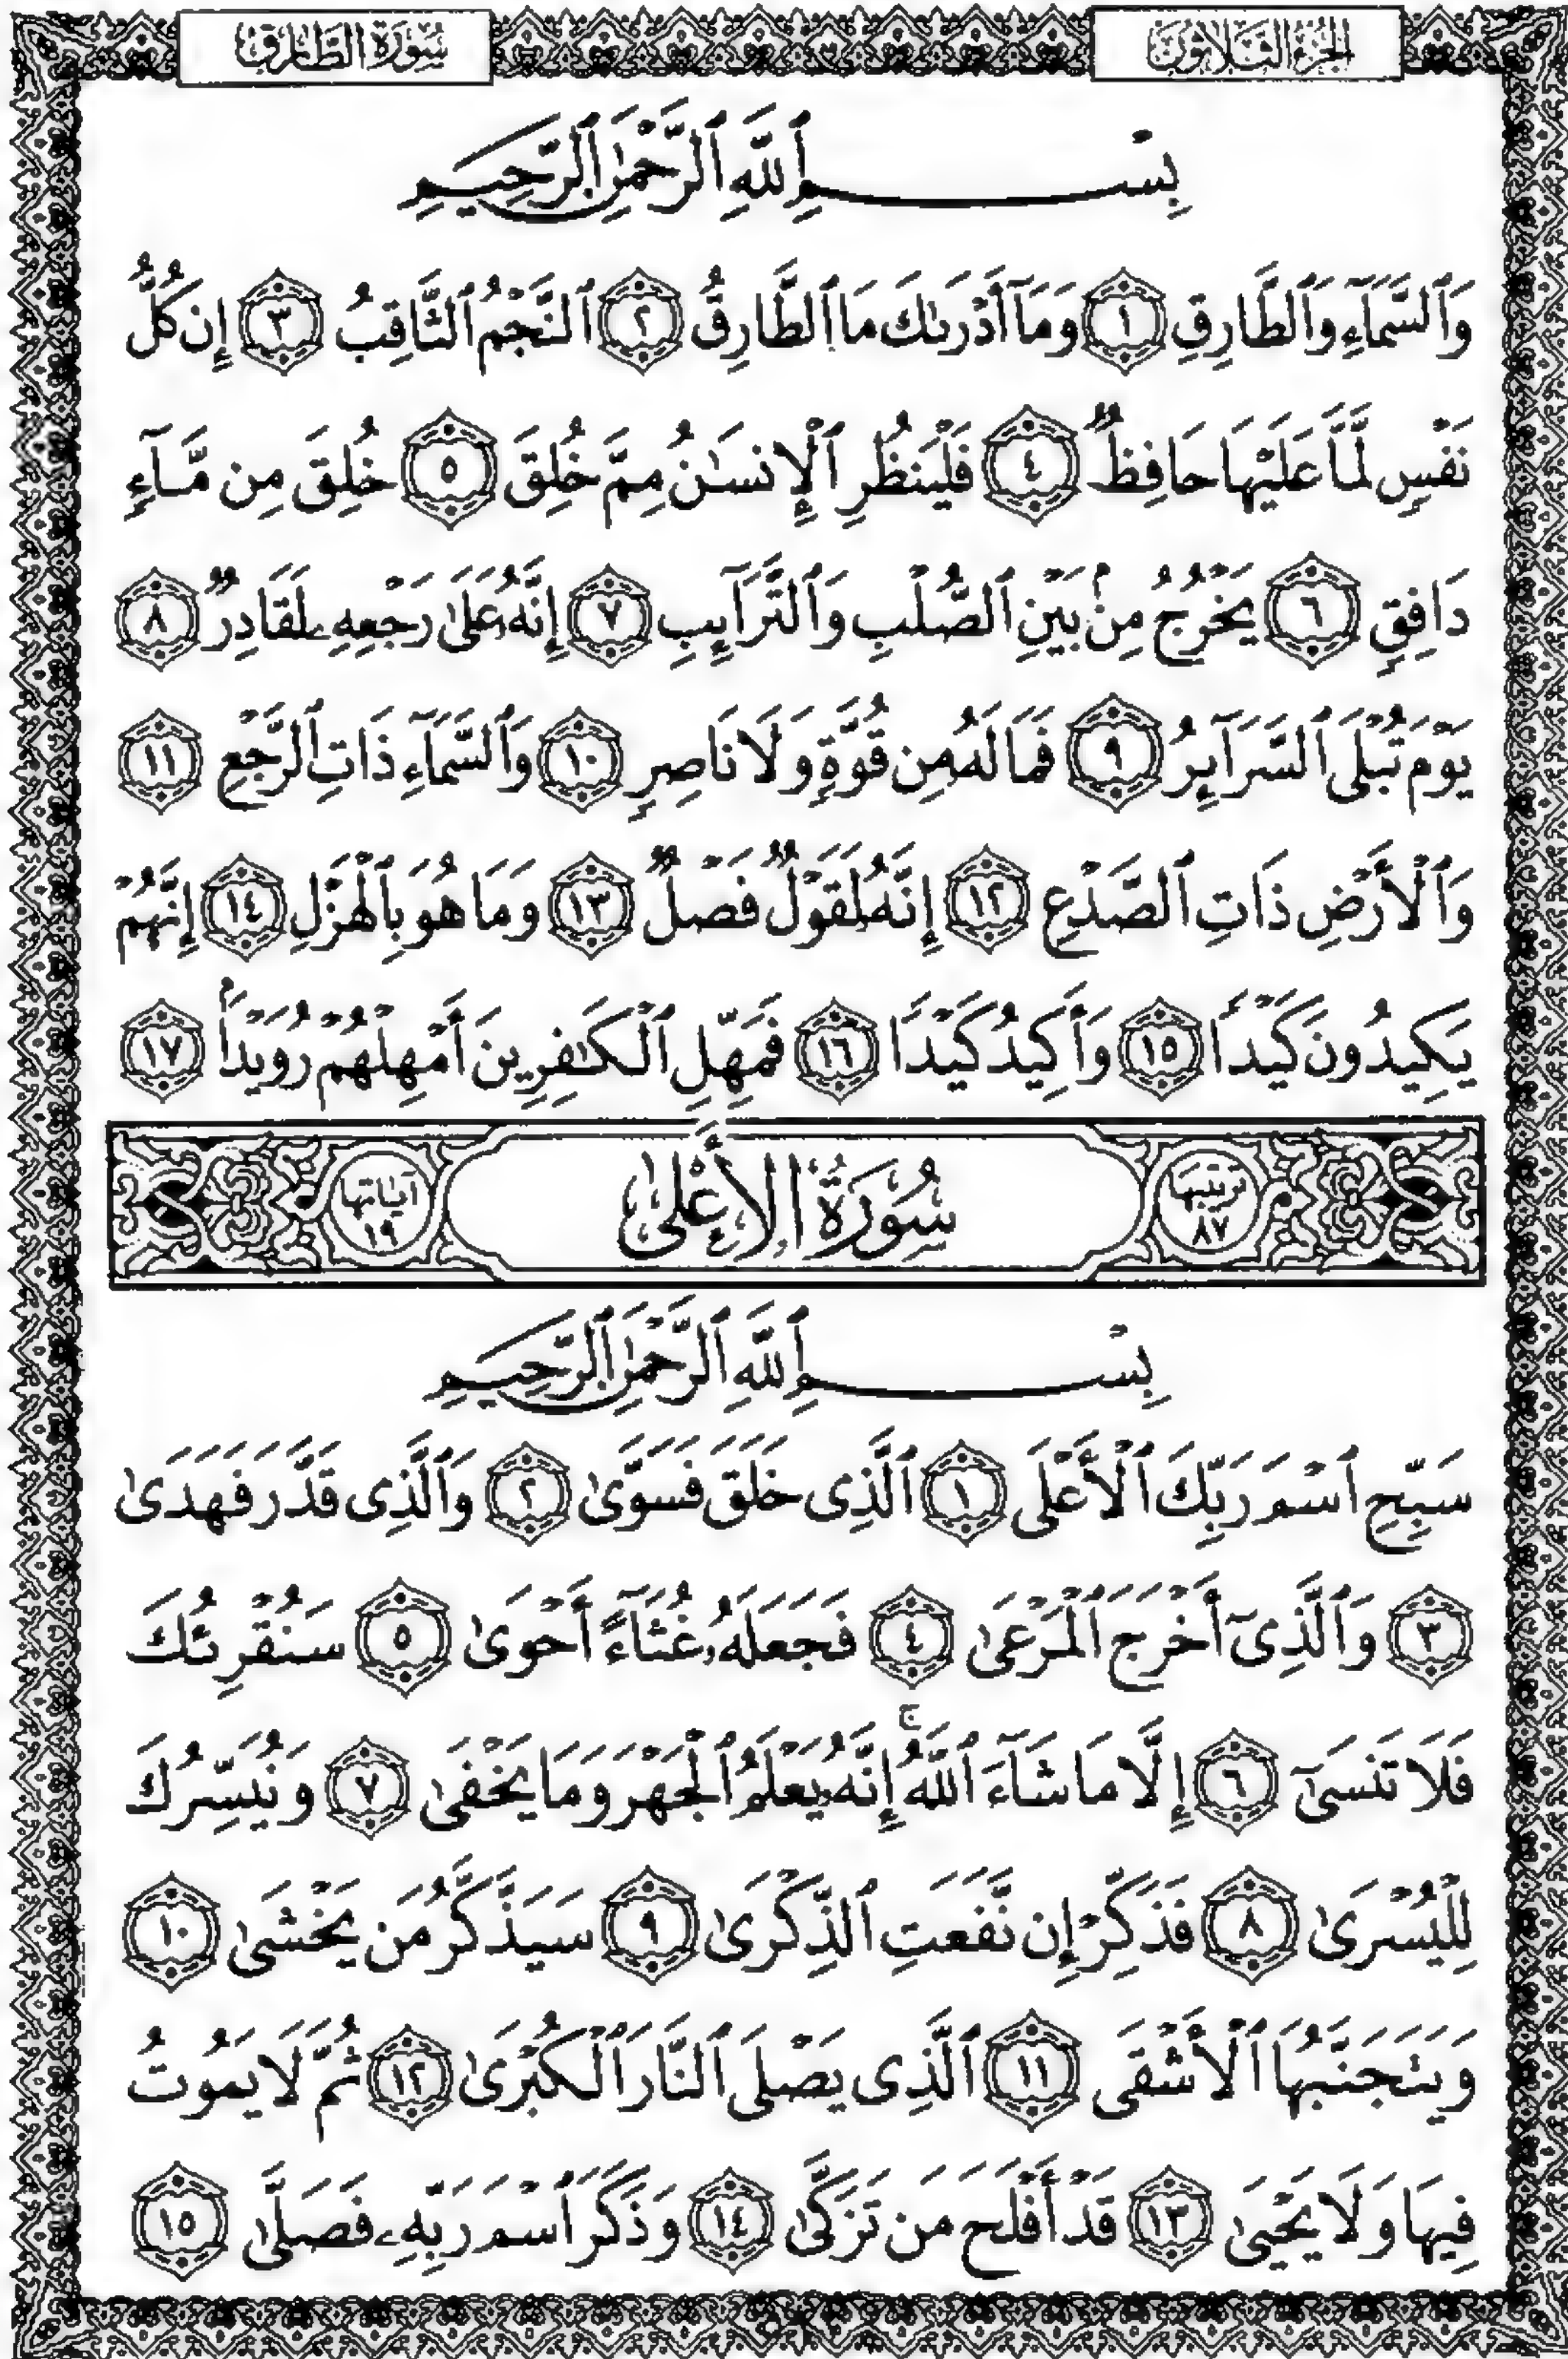 الجزء الثلاثون
سورة الطارق
بِسْمِ ٱللَّهِ ٱلرَّحْمَٰنِ ٱلرَّحِيمِ
وَٱلسَّمَآءِ وَٱلطَّارِقِ ١ وَمَآ أَدْرَىٰكَ مَا ٱلطَّارِقُ ٢ ٱلنَّجْمُ ٱلثَّاقِبُ ٣ إِن كُلُّ
نَفْسٍ لَّمَّا عَلَيْهَا حَافِظٌ ٤ فَلْيَنظُرِ ٱلْإِنسَٰنُ مِمَّ خُلِقَ ٥ خُلِقَ مِن مَّآءٍ
دَافِقٍ ٦ يَخْرُجُ مِنۢ بَيْنِ ٱلصُّلْبِ وَٱلتَّرَآئِبِ ٧ إِنَّهُۥ عَلَىٰ رَجْعِهِۦ لَقَادِرٌ ٨
يَوْمَ تُبْلَى ٱلسَّرَآئِرُ ٩ فَمَا لَهُۥ مِن قُوَّةٍ وَلَا نَاصِرٍ ١٠ وَٱلسَّمَآءِ ذَاتِ ٱلرَّجْعِ ١١
وَٱلْأَرْضِ ذَاتِ ٱلصَّدْعِ ١٢ إِنَّهُۥ لَقَوْلٌ فَصْلٌ ١٣ وَمَا هُوَ بِٱلْهَزْلِ ١٤ إِنَّهُمْ
يَكِيدُونَ كَيْدًا ١٥ وَأَكِيدُ كَيْدًا ١٦ فَمَهِّلِ ٱلْكَٰفِرِينَ أَمْهِلْهُمْ رُوَيْدًۢا ١٧
ترتيبها ٨٧ سُورَةُ الأَعْلَىٰ آياتها ١٩
بِسْمِ ٱللَّهِ ٱلرَّحْمَٰنِ ٱلرَّحِيمِ
سَبِّحِ ٱسْمَ رَبِّكَ ٱلْأَعْلَى ١ ٱلَّذِى خَلَقَ فَسَوَّىٰ ٢ وَٱلَّذِى قَدَّرَ فَهَدَىٰ
٣ وَٱلَّذِىٓ أَخْرَجَ ٱلْمَرْعَىٰ ٤ فَجَعَلَهُۥ غُثَآءً أَحْوَىٰ ٥ سَنُقْرِئُكَ
فَلَا تَنسَىٰٓ ٦ إِلَّا مَا شَآءَ ٱللَّهُ ۚ إِنَّهُۥ يَعْلَمُ ٱلْجَهْرَ وَمَا يَخْفَىٰ ٧ وَنُيَسِّرُكَ
لِلْيُسْرَىٰ ٨ فَذَكِّرْ إِن نَّفَعَتِ ٱلذِّكْرَىٰ ٩ سَيَذَّكَّرُ مَن يَخْشَىٰ ١٠
وَيَتَجَنَّبُهَا ٱلْأَشْقَى ١١ ٱلَّذِى يَصْلَى ٱلنَّارَ ٱلْكُبْرَىٰ ١٢ ثُمَّ لَا يَمُوتُ
فِيهَا وَلَا يَحْيَىٰ ١٣ قَدْ أَفْلَحَ مَن تَزَكَّىٰ ١٤ وَذَكَرَ ٱسْمَ رَبِّهِۦ فَصَلَّىٰ ١٥